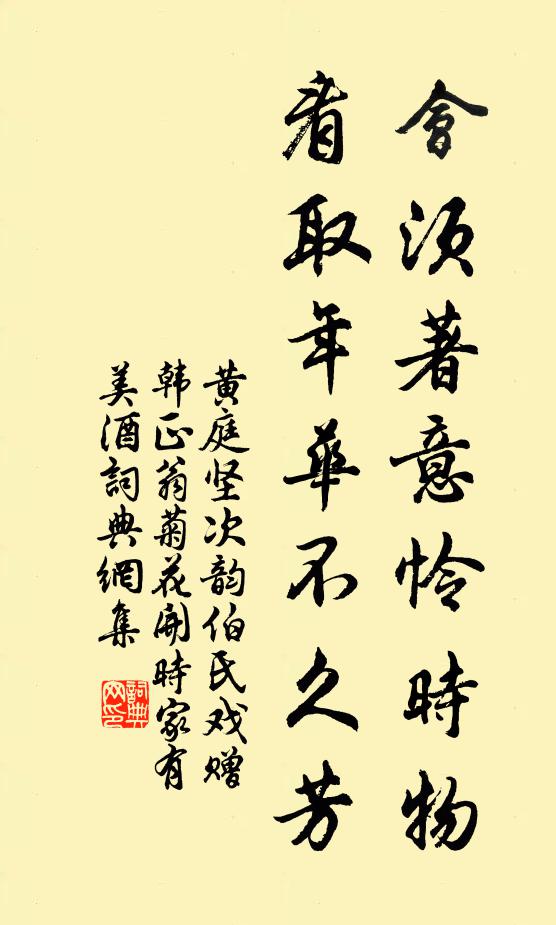 會須著意怜時物
看取年華不久芳
黄庭坚次韵伯氏戏赠
韩正翁菊花開時家有
美酒詞典網集
詞典网印